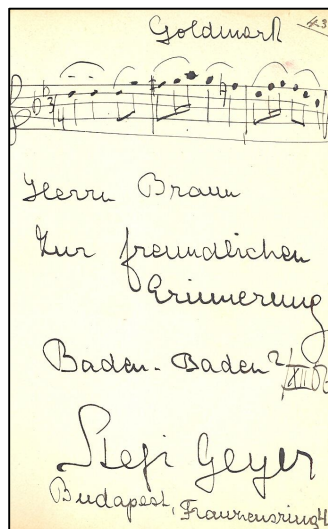 Goldmark 43
3
4
Herrn Braun
Zur freundlichen
Erinnerung
Baden-Baden 2/XII 07
Stefi Geyer
Budapest,